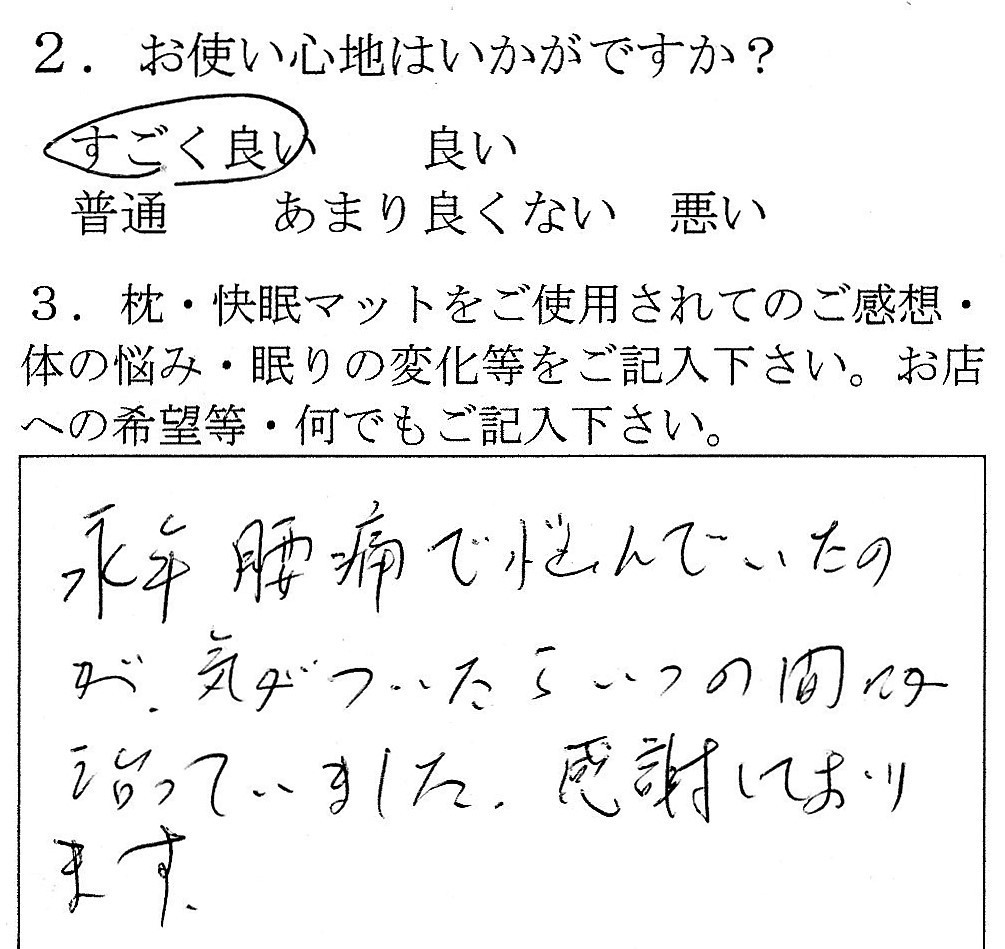 ２．お使い心地はいかがですか？
すごく良い　　良い
普通　　あまり良くない　悪い
３．枕・快眠マットをご使用されてのご感想・
体の悩み・眠りの変化等をご記入下さい。お店
への希望等・何でもご記入下さい。
永年腰痛で悩んでいたの
が、気がついたらいつの間にか
治っていました。感謝しており
ます。